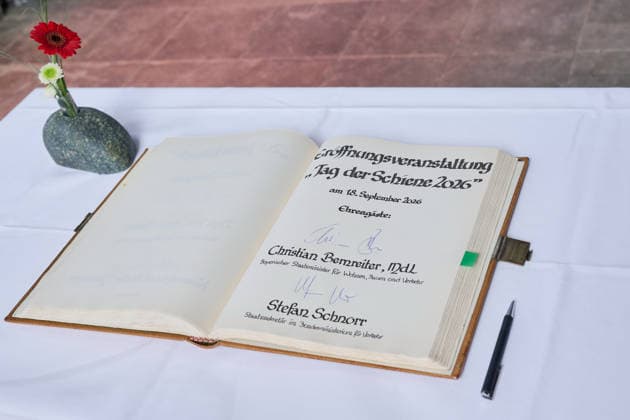 Eröffnungsveranstaltung
„Tag der Schiene 2026”
am 18. September 2026
Ehrengäste:
Christian Bernreiter, MdL
Bayerischer Staatsminister für Wohnen, Bauen und Verkehr
Stefan Schnorr
Staatssekretär im Bundesministerium für Verkehr